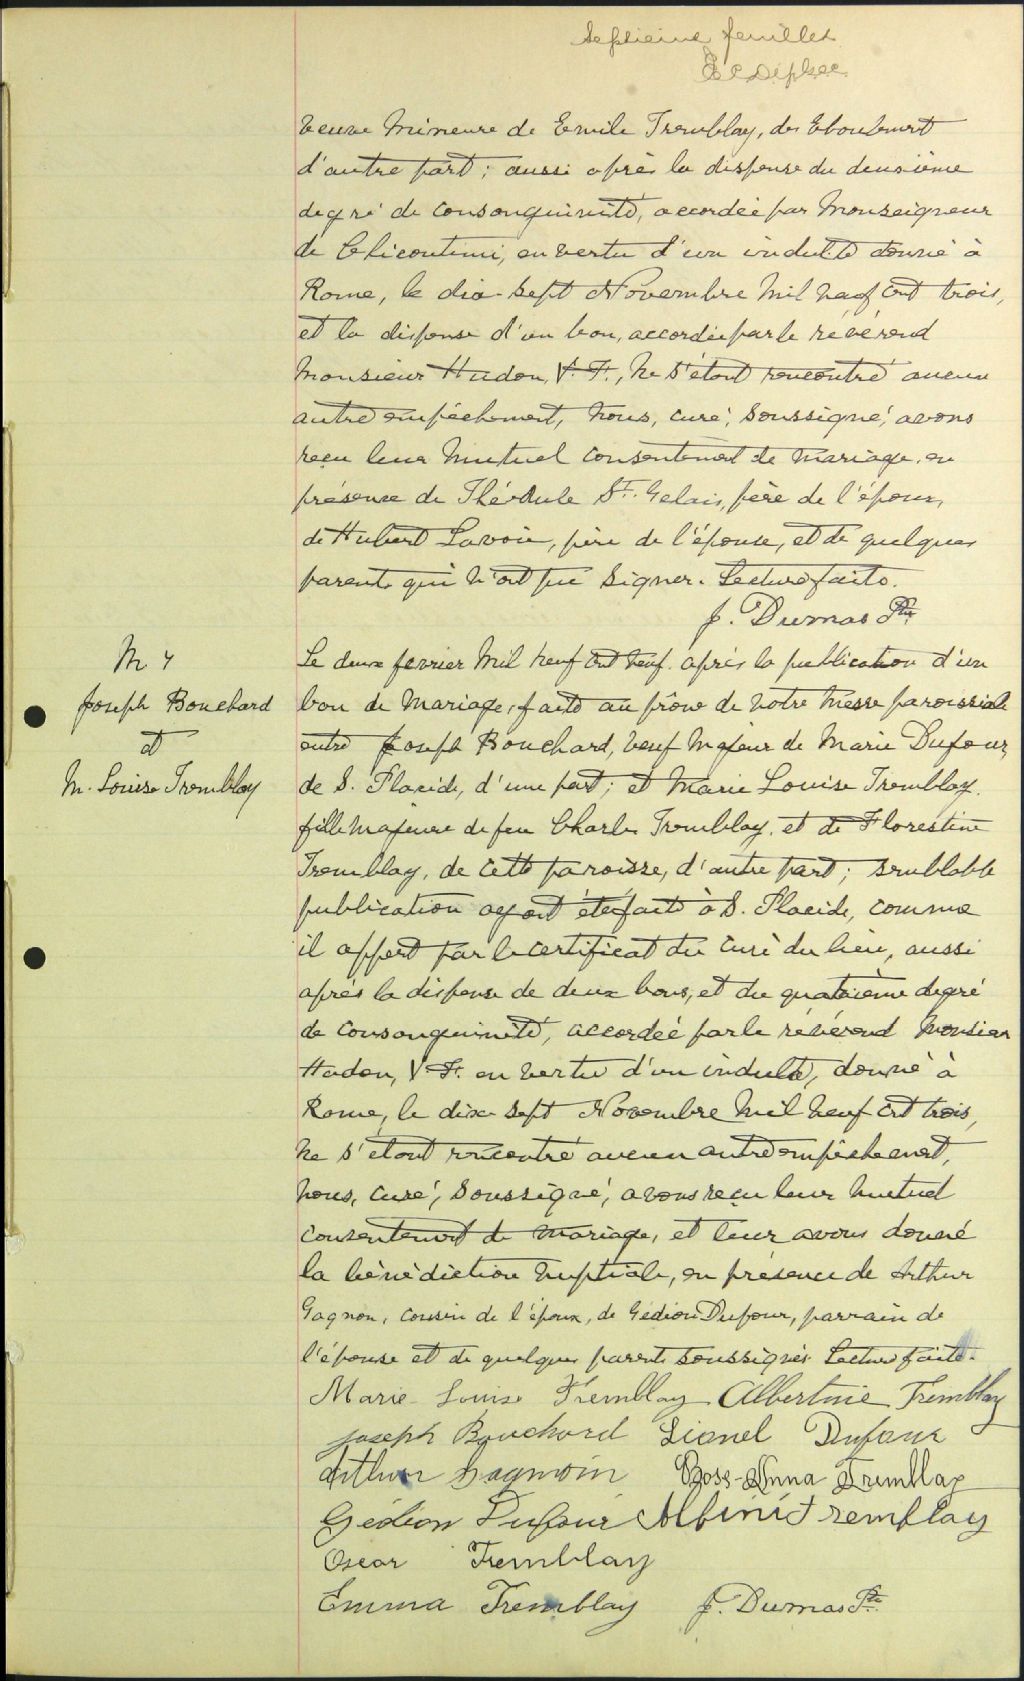 Septième feuillet
veuve mineure de Emile Tremblay, des Eboulements
d'autre part; aussi après la dispense du deuxième
degré de consanguinité, accordée par Monseigneur
de Chicoutimi, en vertu d'un indulte donné à
Rome, le dix-sept Novembre mil neuf cent trois,
et la dispense d'un ban, accordée par le révérend
Monsieur Hudon, V.F., ne s'étant rencontré aucun
autre empêchement, nous, curé, soussigné, avons
reçu leur mutuel consentement de mariage, en
présence de Théodule St. Gelais, père de l'époux,
de Hubert Lavoie, père de l'épouse, et de quelques
parents qui n'ont pu signer. Lecture faite.
J. Dumas Ptre
M 4
Joseph Bouchard
et
M. Louise Tremblay
Le deux fevrier mil neuf cent neuf. après la publication d'un
ban de mariage, faite au prône de notre messe paroissiale
entre Joseph Bouchard, veuf majeur de Marie Dufour,
de S. Placide, d'une part; et Marie Louise Tremblay.
fille majeure de feu Charles Tremblay. et de Florestine
Tremblay, de cette paroisse, d'autre part; semblable
publication ayant été faite à S. Placide, comme
il appert par le certificat du curé du lieu, aussi
après la dispense de deux bans, et du quatrième degré
de consanguinité, accordée par le révérend Monsieur
Hudon, V.F. en vertu d'un indulte, donné à
Rome, le dix-sept Novembre mil neuf cent trois,
ne s'étant rencontré aucun autre empêchement,
nous, curé, soussigné, avons reçu leur mutuel
consentement de mariage, et leur avons donné
la bénédiction nuptiale, en présence de Arthur
Gagnon, cousin de l'époux, de Gédéon Dufour, parrain de
l'épouse et de quelques parents soussignés. Lecture faite.
Marie-Louise Tremblay Albertine Tremblay
Joseph Bouchard Lionel Dufour
Arthur Gagnon Rose-Anna Tremblay
Gédéon Dufour Albini Tremblay
Oscar Tremblay
Emma Tremblay J. Dumas Ptre